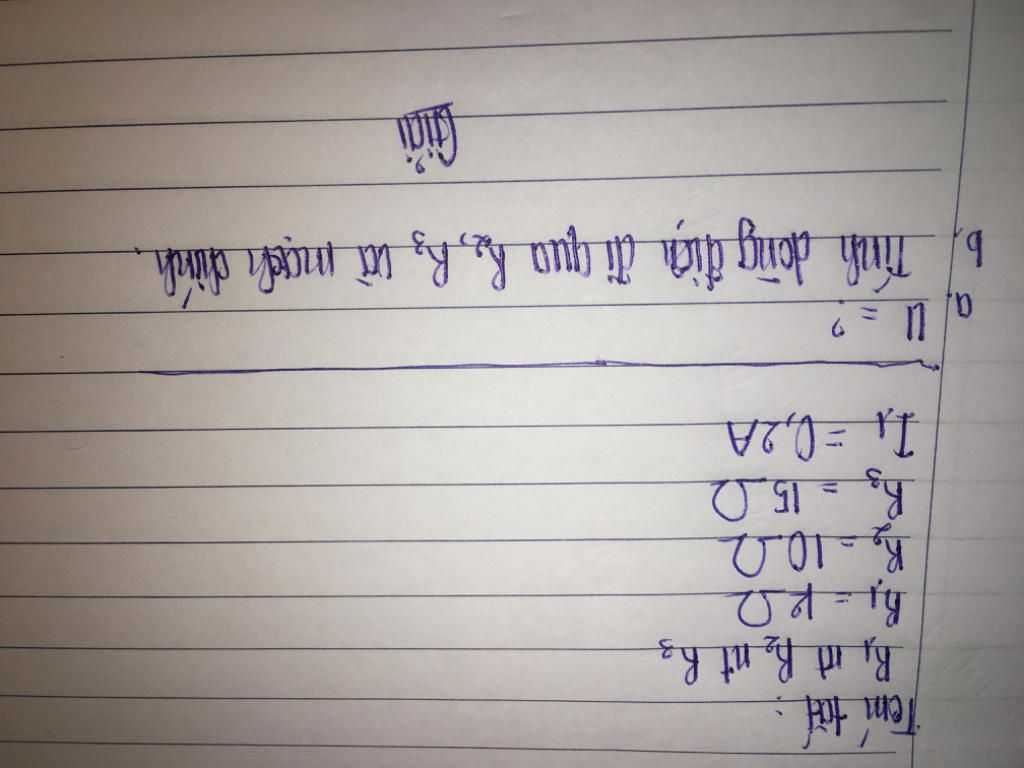 Tóm tắt:
R₁ nt R₂ nt R₃
R₁ = Ω
R₂ = 10 Ω
R₃ = 15 Ω
I₁ = 0,2A
a. U = ?
b. Tính dòng điện đi qua R₂, R₃ và mạch chính.
Giải